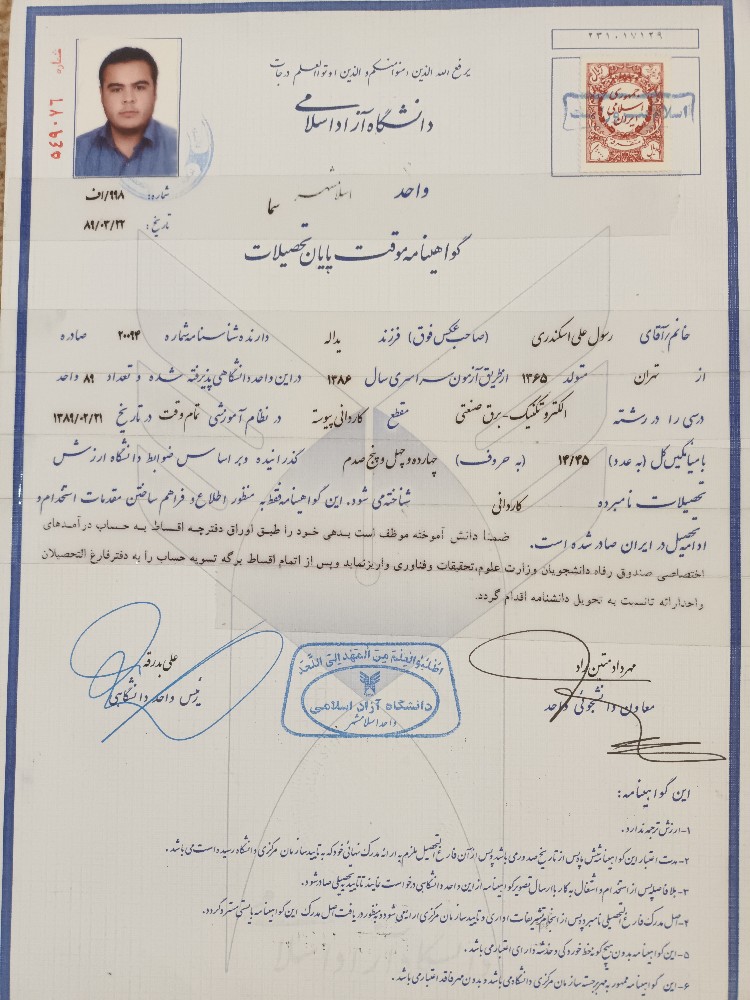 ۲۳۱۰۱۷۱۲۹
شماره ۵۴۹۰۷۶
یرفع الله الذین امنوا منکم والذین اوتوا العلم درجات
جمهوری اسلامی ایران
دانشگاه آزاد اسلامی
واحد اسلامشهر
سما
شماره: ۹۹۸/اف
تاریخ: ۸۹/۰۳/۲۲
گواهینامه موقت پایان تحصیلات
خانم/آقای رسول علی اسکندری (صاحب عکس فوق) فرزند یداله دارنده شناسنامه شماره ۲۰۰۹۴ صادره
از تهران متولد ۱۳۶۵ از طریق آزمون سراسری سال ۱۳۸۶ در این واحد دانشگاهی پذیرفته شده و تعداد ۸۹ واحد
درسی را در رشته الکتروتکنیک-برق صنعتی مقطع کاردانی پیوسته در نظام آموزشی تمام وقت در تاریخ ۱۳۸۹/۰۲/۲۱
با میانگین کل (به عدد) ۱۴/۴۵ (به حروف) چهارده و چهل و پنج صدم گذرانیده و بر اساس ضوابط دانشگاه ارزش
تحصیلات نامبرده کاردانی شناخته می شود. این گواهینامه فقط به منظور اطلاع و فراهم ساختن مقدمات استخدام و
ادامه تحصیل در ایران صادر شده است. ضمنا دانش آموخته موظف است بدهی خود را طبق اوراق دفترچه اقساط به حساب درآمدهای
اختصاصی صندوق رفاه دانشجویان وزارت علوم،تحقیقات وفناوری واریزنماید وپس از اتمام اقساط برگه تسویه حساب را به دفترفارغ التحصیلان
واحدارائه تانسبت به تحویل دانشنامه اقدام گردد.
مهرداد متین راد
معاون دانشجوئی واحد
اطلبوا العلم من المهد الی اللحد
دانشگاه آزاد اسلامی
واحد اسلامشهر
علی بدرقه
رئیس واحد دانشگاهی
این گواهینامه:
۱-ارزش ترجمه ندارد.
۲-مدت اعتبار این گواهینامه شش ماه پس از تاریخ صدور می باشد پس از آن فارغ التحصیل ملزم به ارائه مدرک نهائی خود که به تایید سازمان مرکزی دانشگاه رسیده است می باشد.
۳-بلافاصله پس از استخدام و اشتغال به کار با ارسال تصویر گواهینامه از این واحد دانشگاهی درخواست نمایند تا تاییدیه تحصیلی صادر شود.
۴-اصل مدرک فارغ التحصیلی نامبرده پس از انجام تشریفات اداری و تایید سازمان مرکزی ارایه می شود و بمنظور دریافت اصل مدرک این گواهینامه بایستی مسترد گردد.
۵-این گواهینامه بدون هیچگونه خط خوردگی و خدشه دارای اعتبار می باشد.
۶-این گواهینامه ممهور به مهر برجسته سازمان مرکزی دانشگاه می باشد و بدون مهر فاقد اعتبار می باشد.